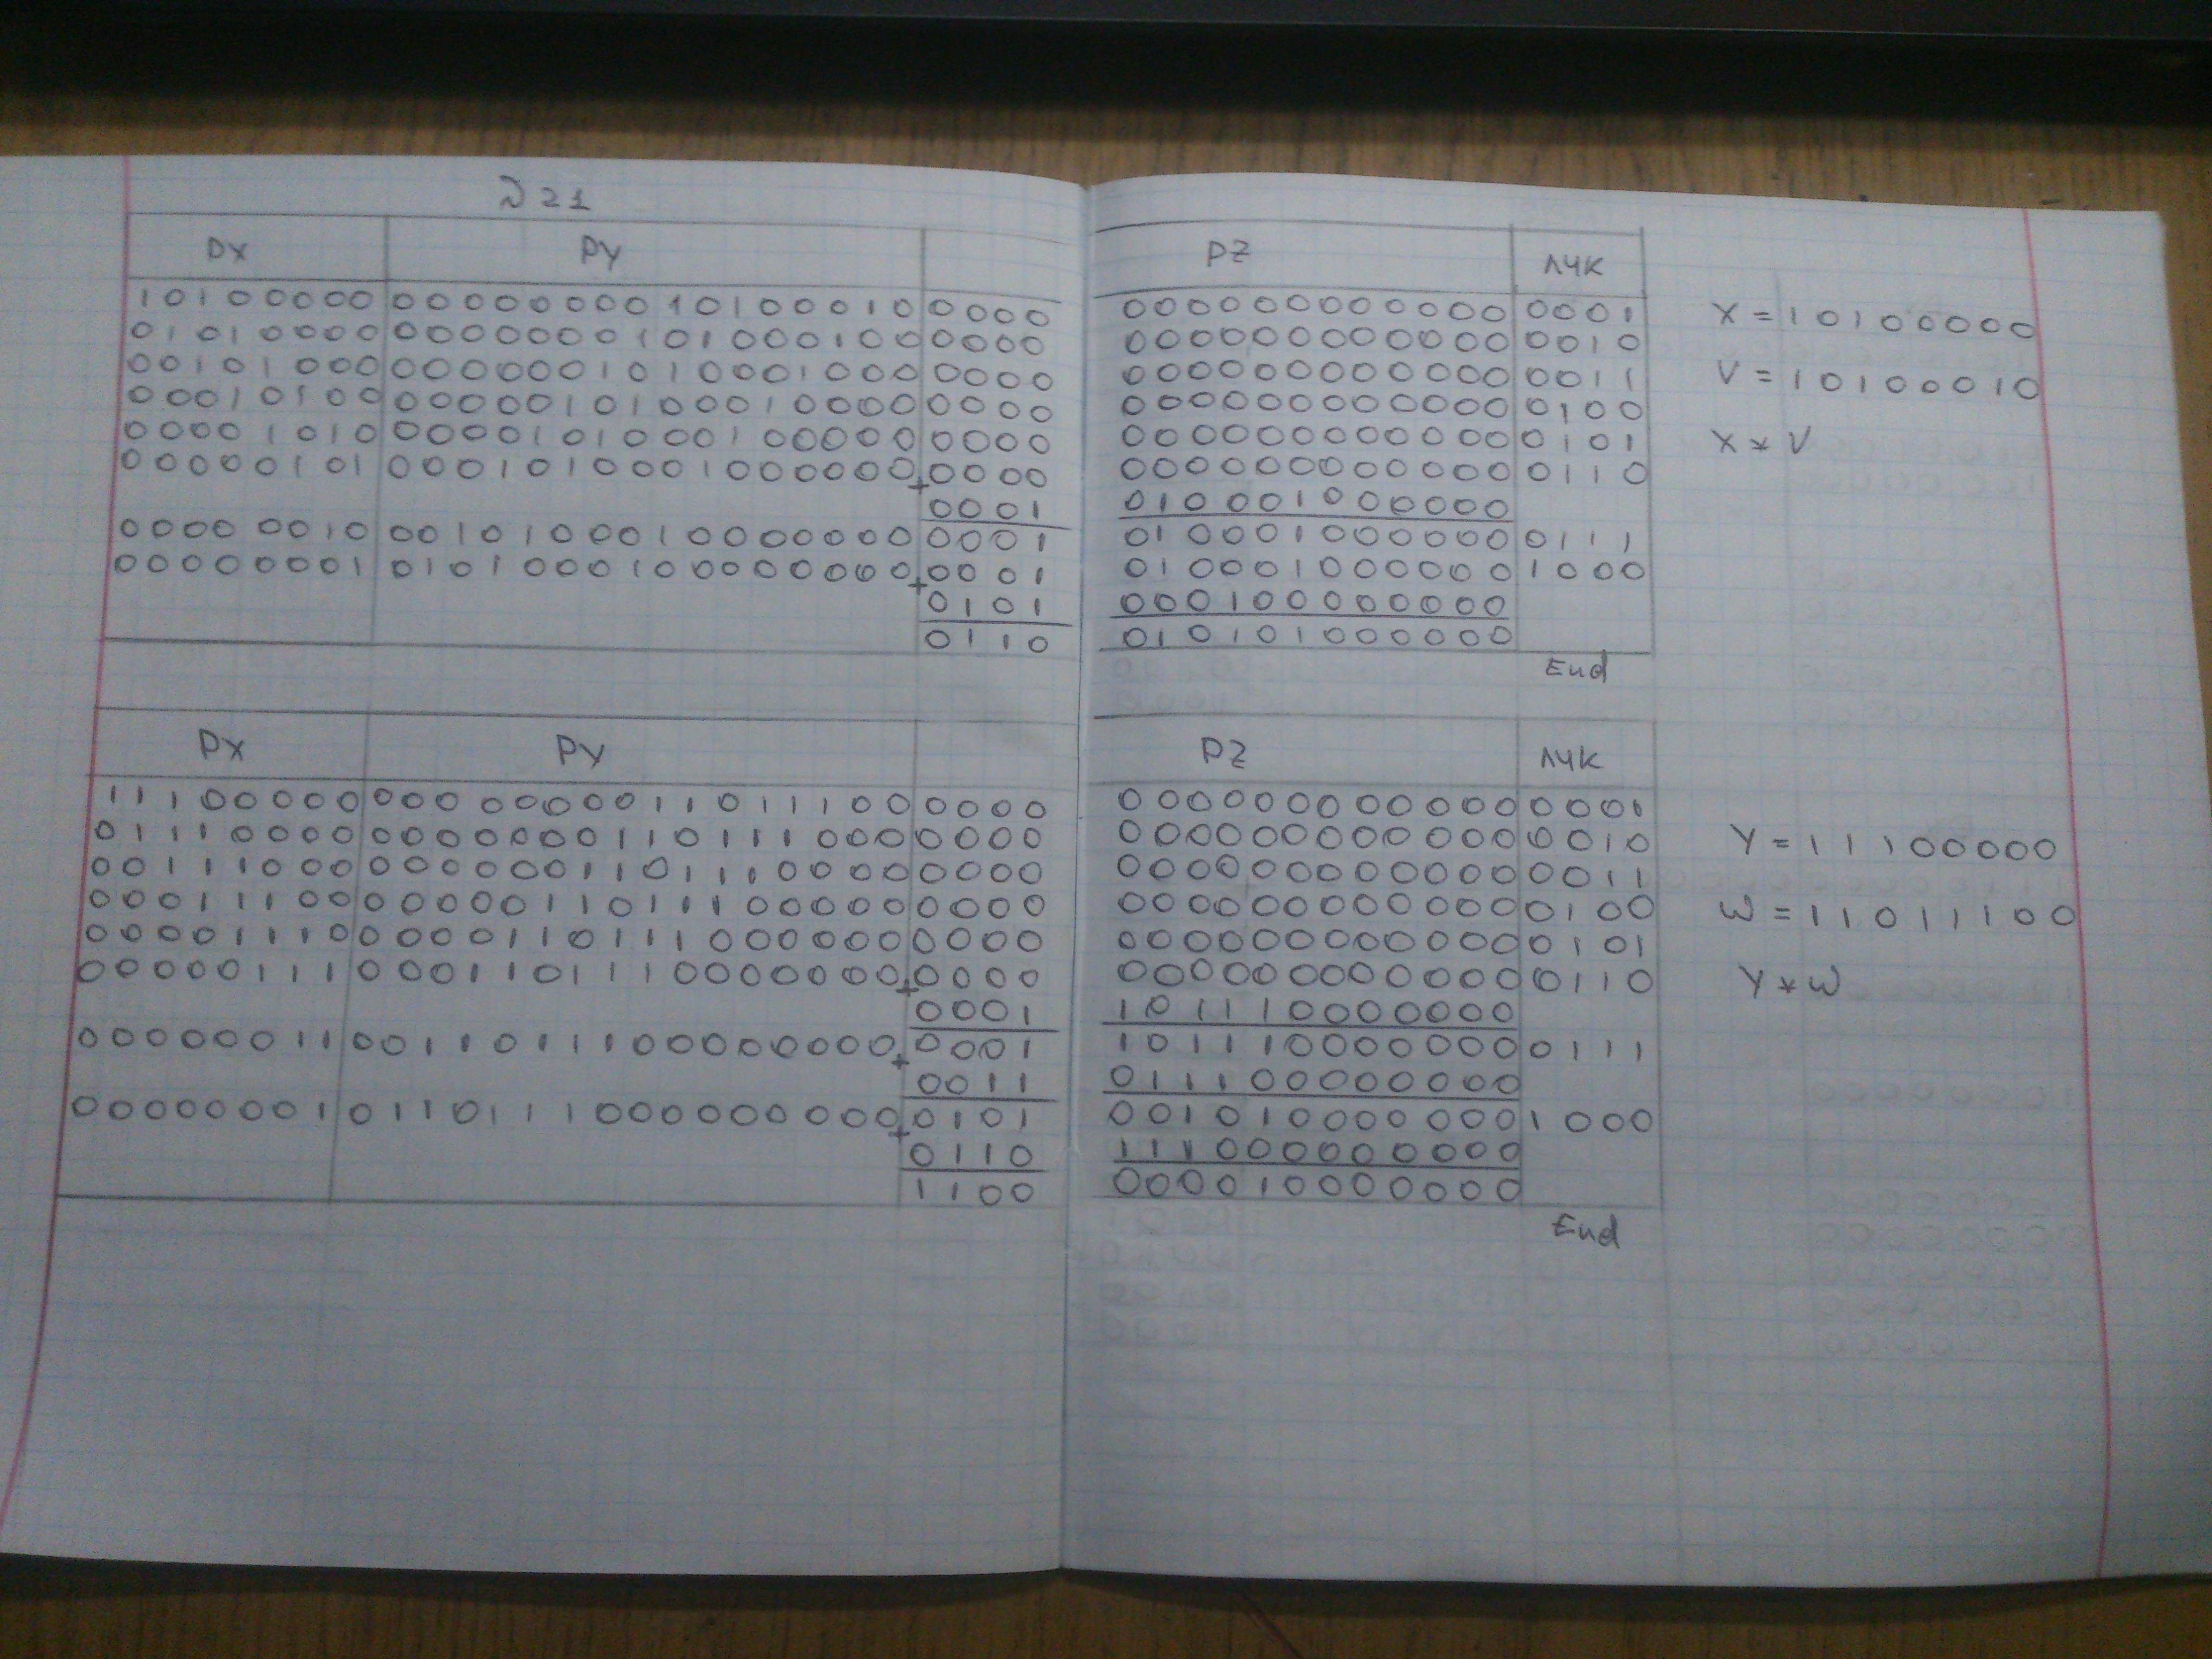 Dz1
PX PY PZ ЛЧК
10100000 0000000010100010 0000 000000000000 0001 X = 10100000
01010000 0000000101000100 0000 000000000000 0010
00101000 0000001010001000 0000 000000000000 0011 V = 10100010
00010100 0000010100010000 0000 000000000000 0100
00001010 0000101000100000 0000 000000000000 0101 X * V
00000101 0001010001000000 + 0000 000000000000 0110
0001 010001000000
00000010 0010100010000000 0001 010001000000 0111
00000001 0101000100000000 + 0001 010001000000 1000
0101 000100000000
0110 010101000000
End
PX PY PZ ЛЧК
11100000 0000000011011100 0000 000000000000 0001
01110000 0000000110111000 0000 000000000000 0010 Y = 11100000
00111000 0000001101110000 0000 000000000000 0011
00011100 0000011011100000 0000 000000000000 0100 W = 11011100
00001110 0000110111000000 0000 000000000000 0101
00000111 0001101110000000 + 0000 000000000000 0110 Y * W
0001 101110000000
00000011 0011011100000000 + 0001 101110000000 0111
0011 011100000000
00000001 0110111000000000 + 0101 001010000000 1000
0110 111000000000
1100 000010000000
End